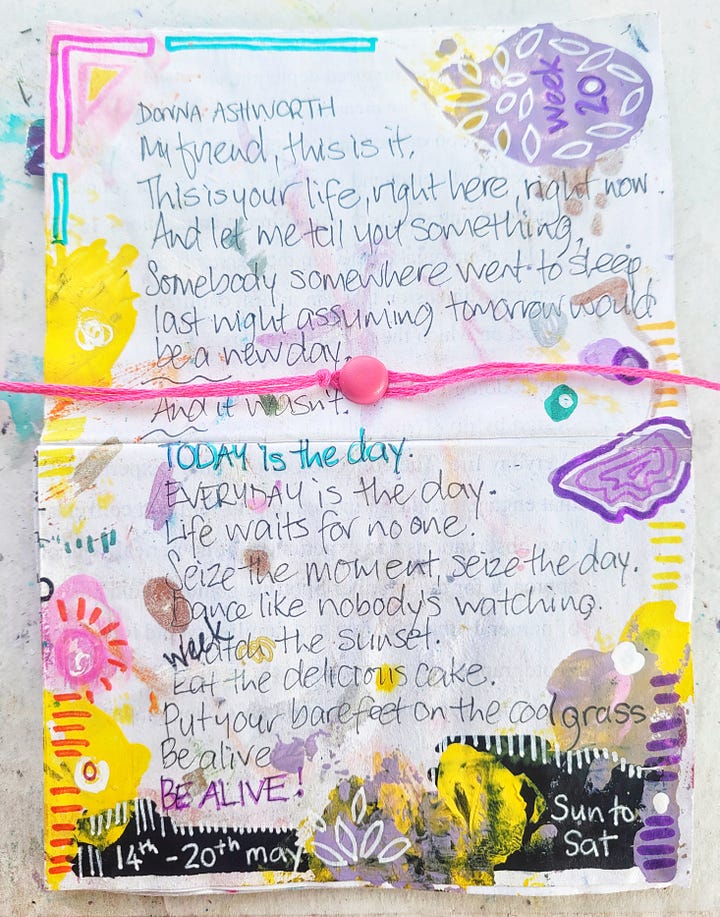 week
20
DONNA ASHWORTH
My friend, this is it.
This is your life, right here, right now.
And let me tell you something,
Somebody somewhere went to sleep
last night assuming tomorrow would
be a new day.
And it wasn't.
TODAY is the day.
EVERYDAY is the day.
Life waits for no one.
Seize the moment, seize the day.
Dance like nobody's watching.
week
Watch the sunset.
Eat the delicious cake.
Put your bare feet on the cool grass
Be alive
BE ALIVE!
14th - 20th may
Sun to
Sat